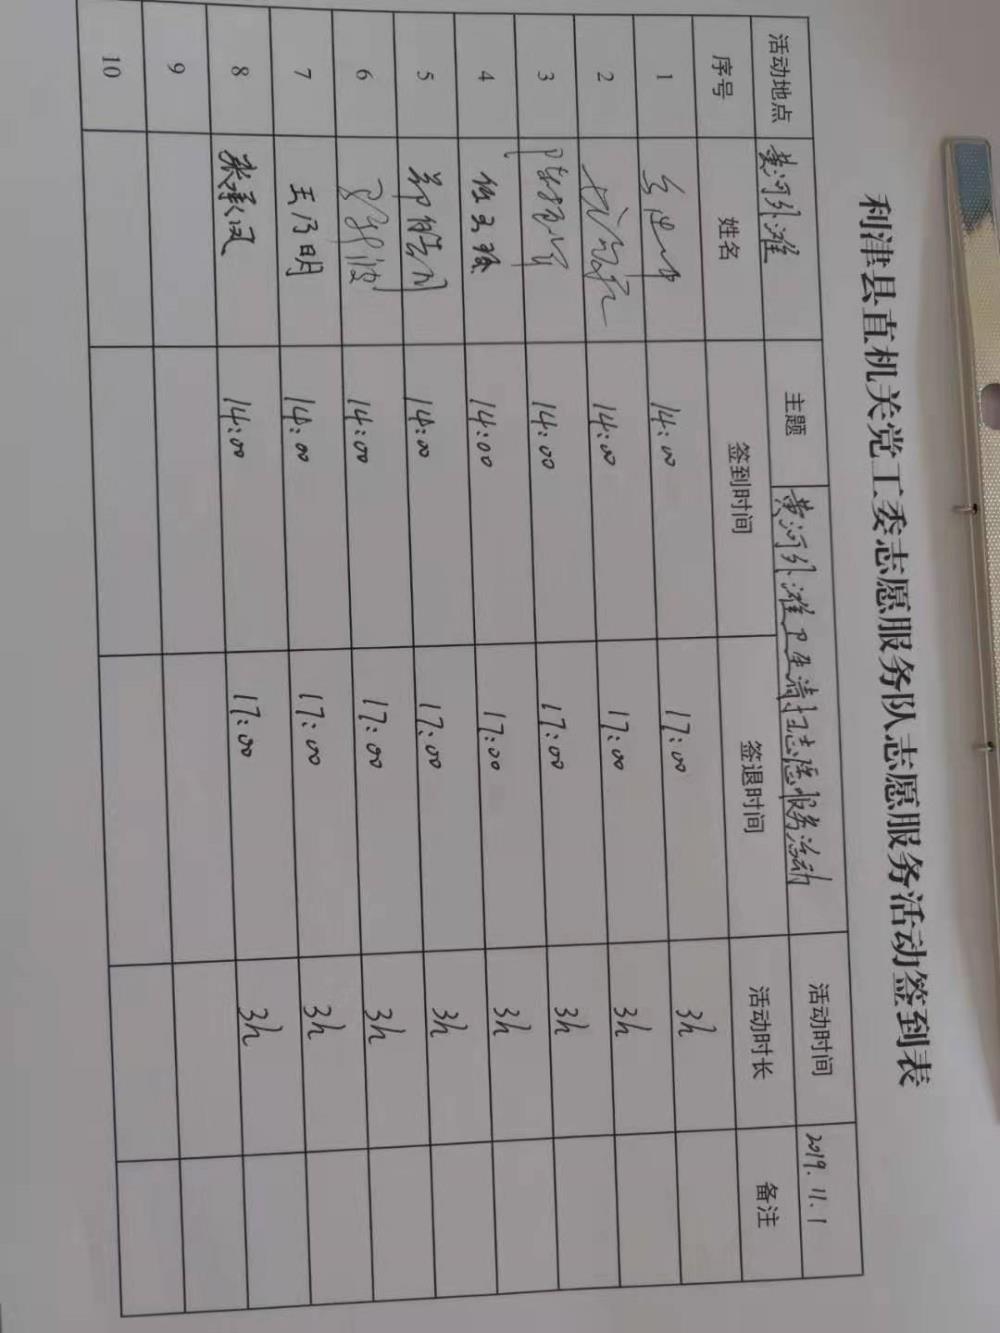 利津县直机关党工委志愿服务队志愿服务活动签到表
活动地点 黄河外滩 主题 黄河外滩卫生清扫志愿服务活动 活动时间 2019.11.1
序号 姓名 签到时间 签退时间 活动时长 备注
1 14:00 17:00 3h
2 14:00 17:00 3h
3 14:00 17:00 3h
4 14:00 17:00 3h
5 14:00 17:00 3h
6 14:00 17:00 3h
7 王乃明 14:00 17:00 3h
8 14:00 17:00 3h
9
10